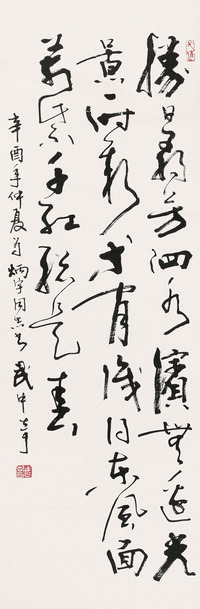 勝日尋芳泗水濱無邊光
景一時新等閒識得東風面
萬紫千紅總是春
辛酉年仲夏為炳宇同志書 武中奇